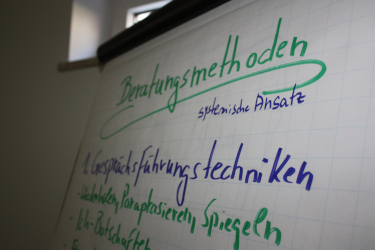 Beratungsmethoden
systemische Ansatz
1. Gesprächsführungstechniken
- Wiederholen, Paraphrasieren, Spiegeln
- Ich-Botschaften